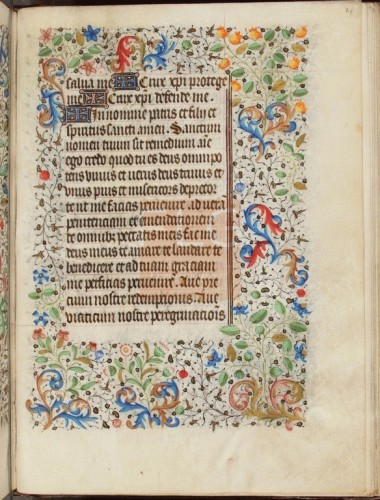 salva me Crux xpi protege
me Crux xpi defende me.
In nomine patris et filij et
spiritus sancti amen. Sanctum
nomen tuum sit remedium
ego credo quod tu es deus omnipo
tens vivus et verus deus
pius et misericors deprecor
te ut me facias pervenire ad vera
penitenciam et emendationem
de omnibus peccatis meis fac me
deus meus te amare te laudare te
benedicere et ad tuam graciam
me perficias pervenire. Ave pre
cium nostre redemptionis. Ave
viaticum nostre peregrinacionis